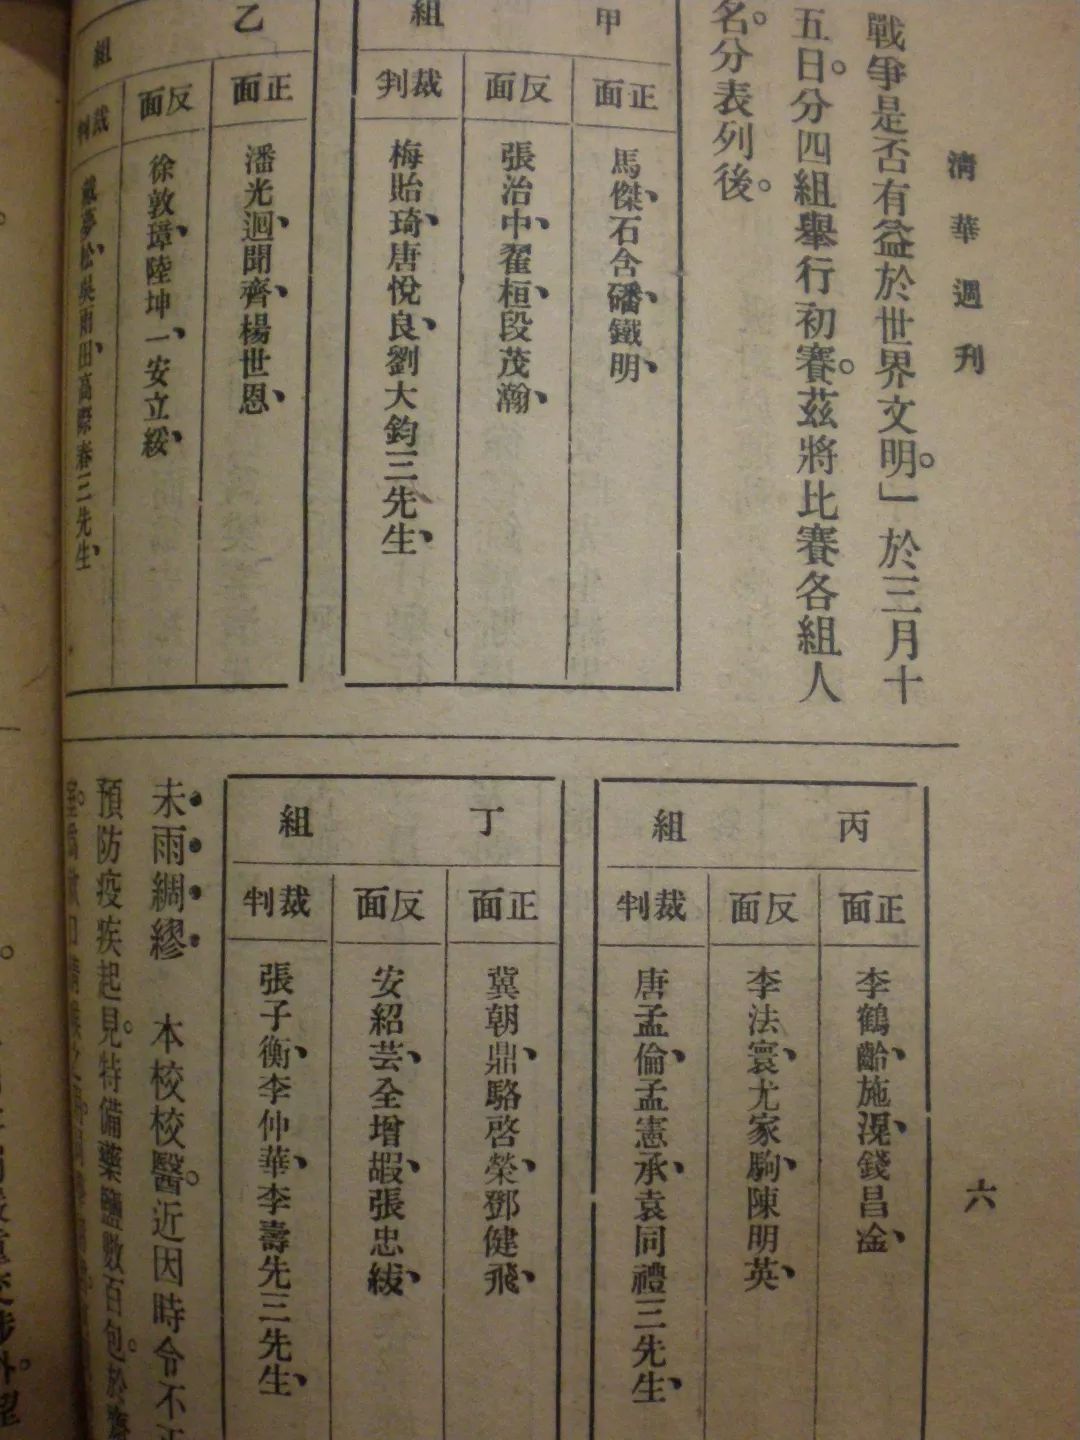 清華週刊
六
戰爭是否有益於世界文明。」於三月十
五日。分四組舉行初賽。茲將比賽各組人
名。分表列後。
甲組
正面
馬傑、石含磻、鐵明、
反面
張治中、翟桓、段茂瀚、
裁判
梅貽琦、唐悅良、劉大鈞三先生、
乙組
正面
潘光迥、聞齊、楊世恩、
反面
徐敦璋、陸坤一、安立綏、
裁判
戴夢松、吳雨田、高際春三先生、
丙組
正面
李鶴齡、施滉、錢昌淦、
反面
李法寰、尤家駒、陳明英、
裁判
唐孟倫、孟憲承、袁同禮三先生、
丁組
正面
冀朝鼎、駱啓榮、鄧健飛、
反面
安紹芸、全增嘏、張忠紱、
裁判
張子衡、李仲華、李壽先三先生、
未雨綢繆 本校校醫。近因時令不正
預防疫疾起見。特備藥鹽數百包。於